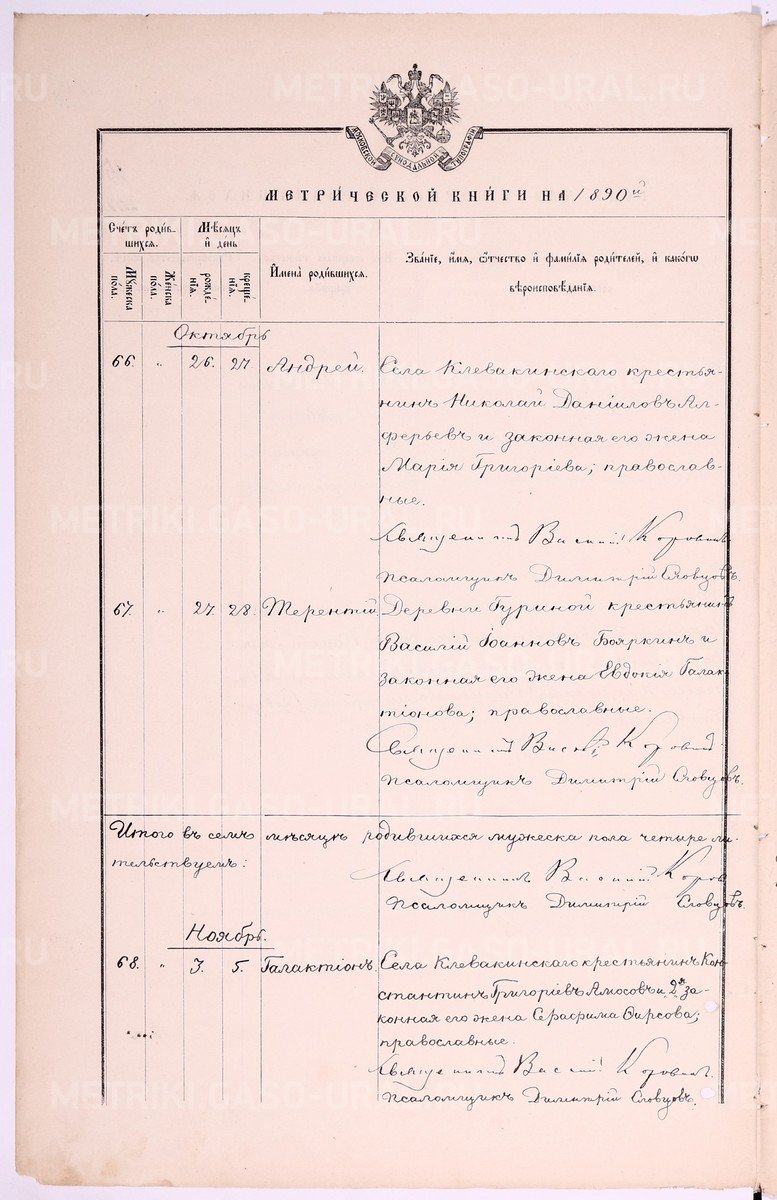 METRIKI.GASO-URAL.RU
МОСКОВСКОЙ СѴНОДАЛЬНОЙ ТИПОГРАФІИ
МЕТРИ́ЧЕСКОЙ КНИ́ГИ НА 1890й
Сче́тъ роди́в-
шихся.
Мѣ́сяцъ
и҆ де́нь
И҆мена̀ роди́вшихся.
Зва́нїе, и҆́мя, ѻ҆́тчество и҆ фами́лїя роди́телей, и҆ како́гѡ
вѣроисповѣ́данїя.
Мꙋ́жеска
по́ла.
Же́нска
по́ла.
рожде́-
нїя.
креще́-
нїя.
Октябрь
66. " 26. 27. Андрей. Села Клевакинскаго крестья-
нинъ Николай Даніиловъ Ал-
ферьевъ и законная его жена
Марія Григоріева; православ-
ные.
Священникъ Василій Коровин
Псаломщикъ Димитрій Словцовъ.
67. " 27. 28. Терентій. Деревни Гуриной крестьянинъ
Василій Іоанновъ Бояркинъ и
законная его жена Евдокія Галак-
тіонова; православные.
Священникъ Василій Коровин
Псаломщикъ Димитрій Словцовъ.
Итого въ семъ мѣсяцѣ родившихся мужеска пола четыре
тельствуемъ:
Священникъ Василій Коров
Псаломщикъ Димитрій Словцовъ.
Ноябрь.
68. " 3. 5. Галактіонъ. Села Клевакинскаго крестьянинъ Кон-
стантинъ Григоріевъ Амосовъ и 2я за-
конная его жена Серафима Ѳирсова;
православные.
Священникъ Василій Коровин
Псаломщикъ Димитрій Словцовъ.